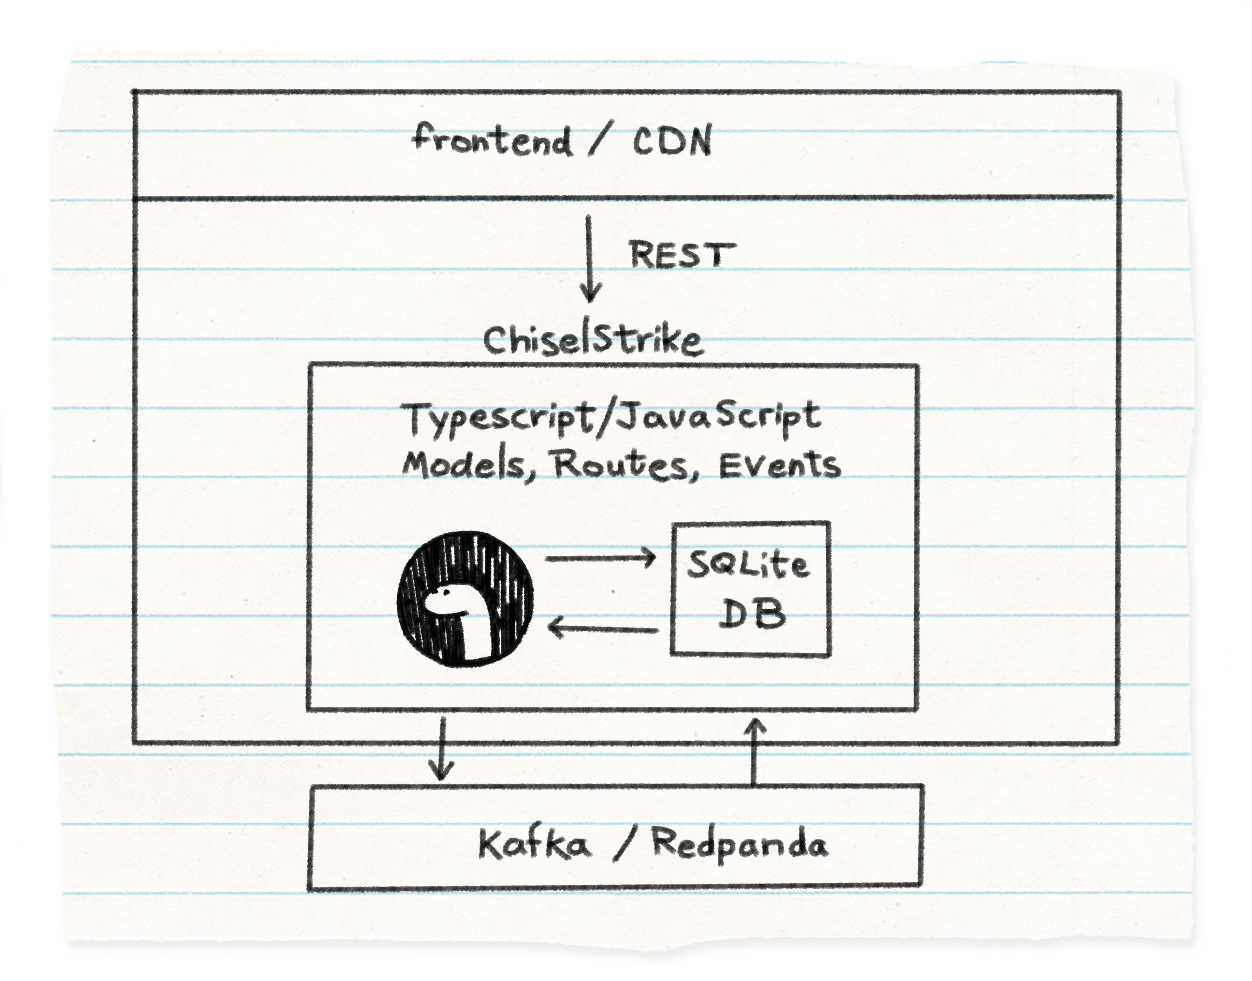 frontend / CDN
REST
ChiselStrike
Typescript/JavaScript
Models, Routes, Events
SQLite
DB
Kafka / Redpanda